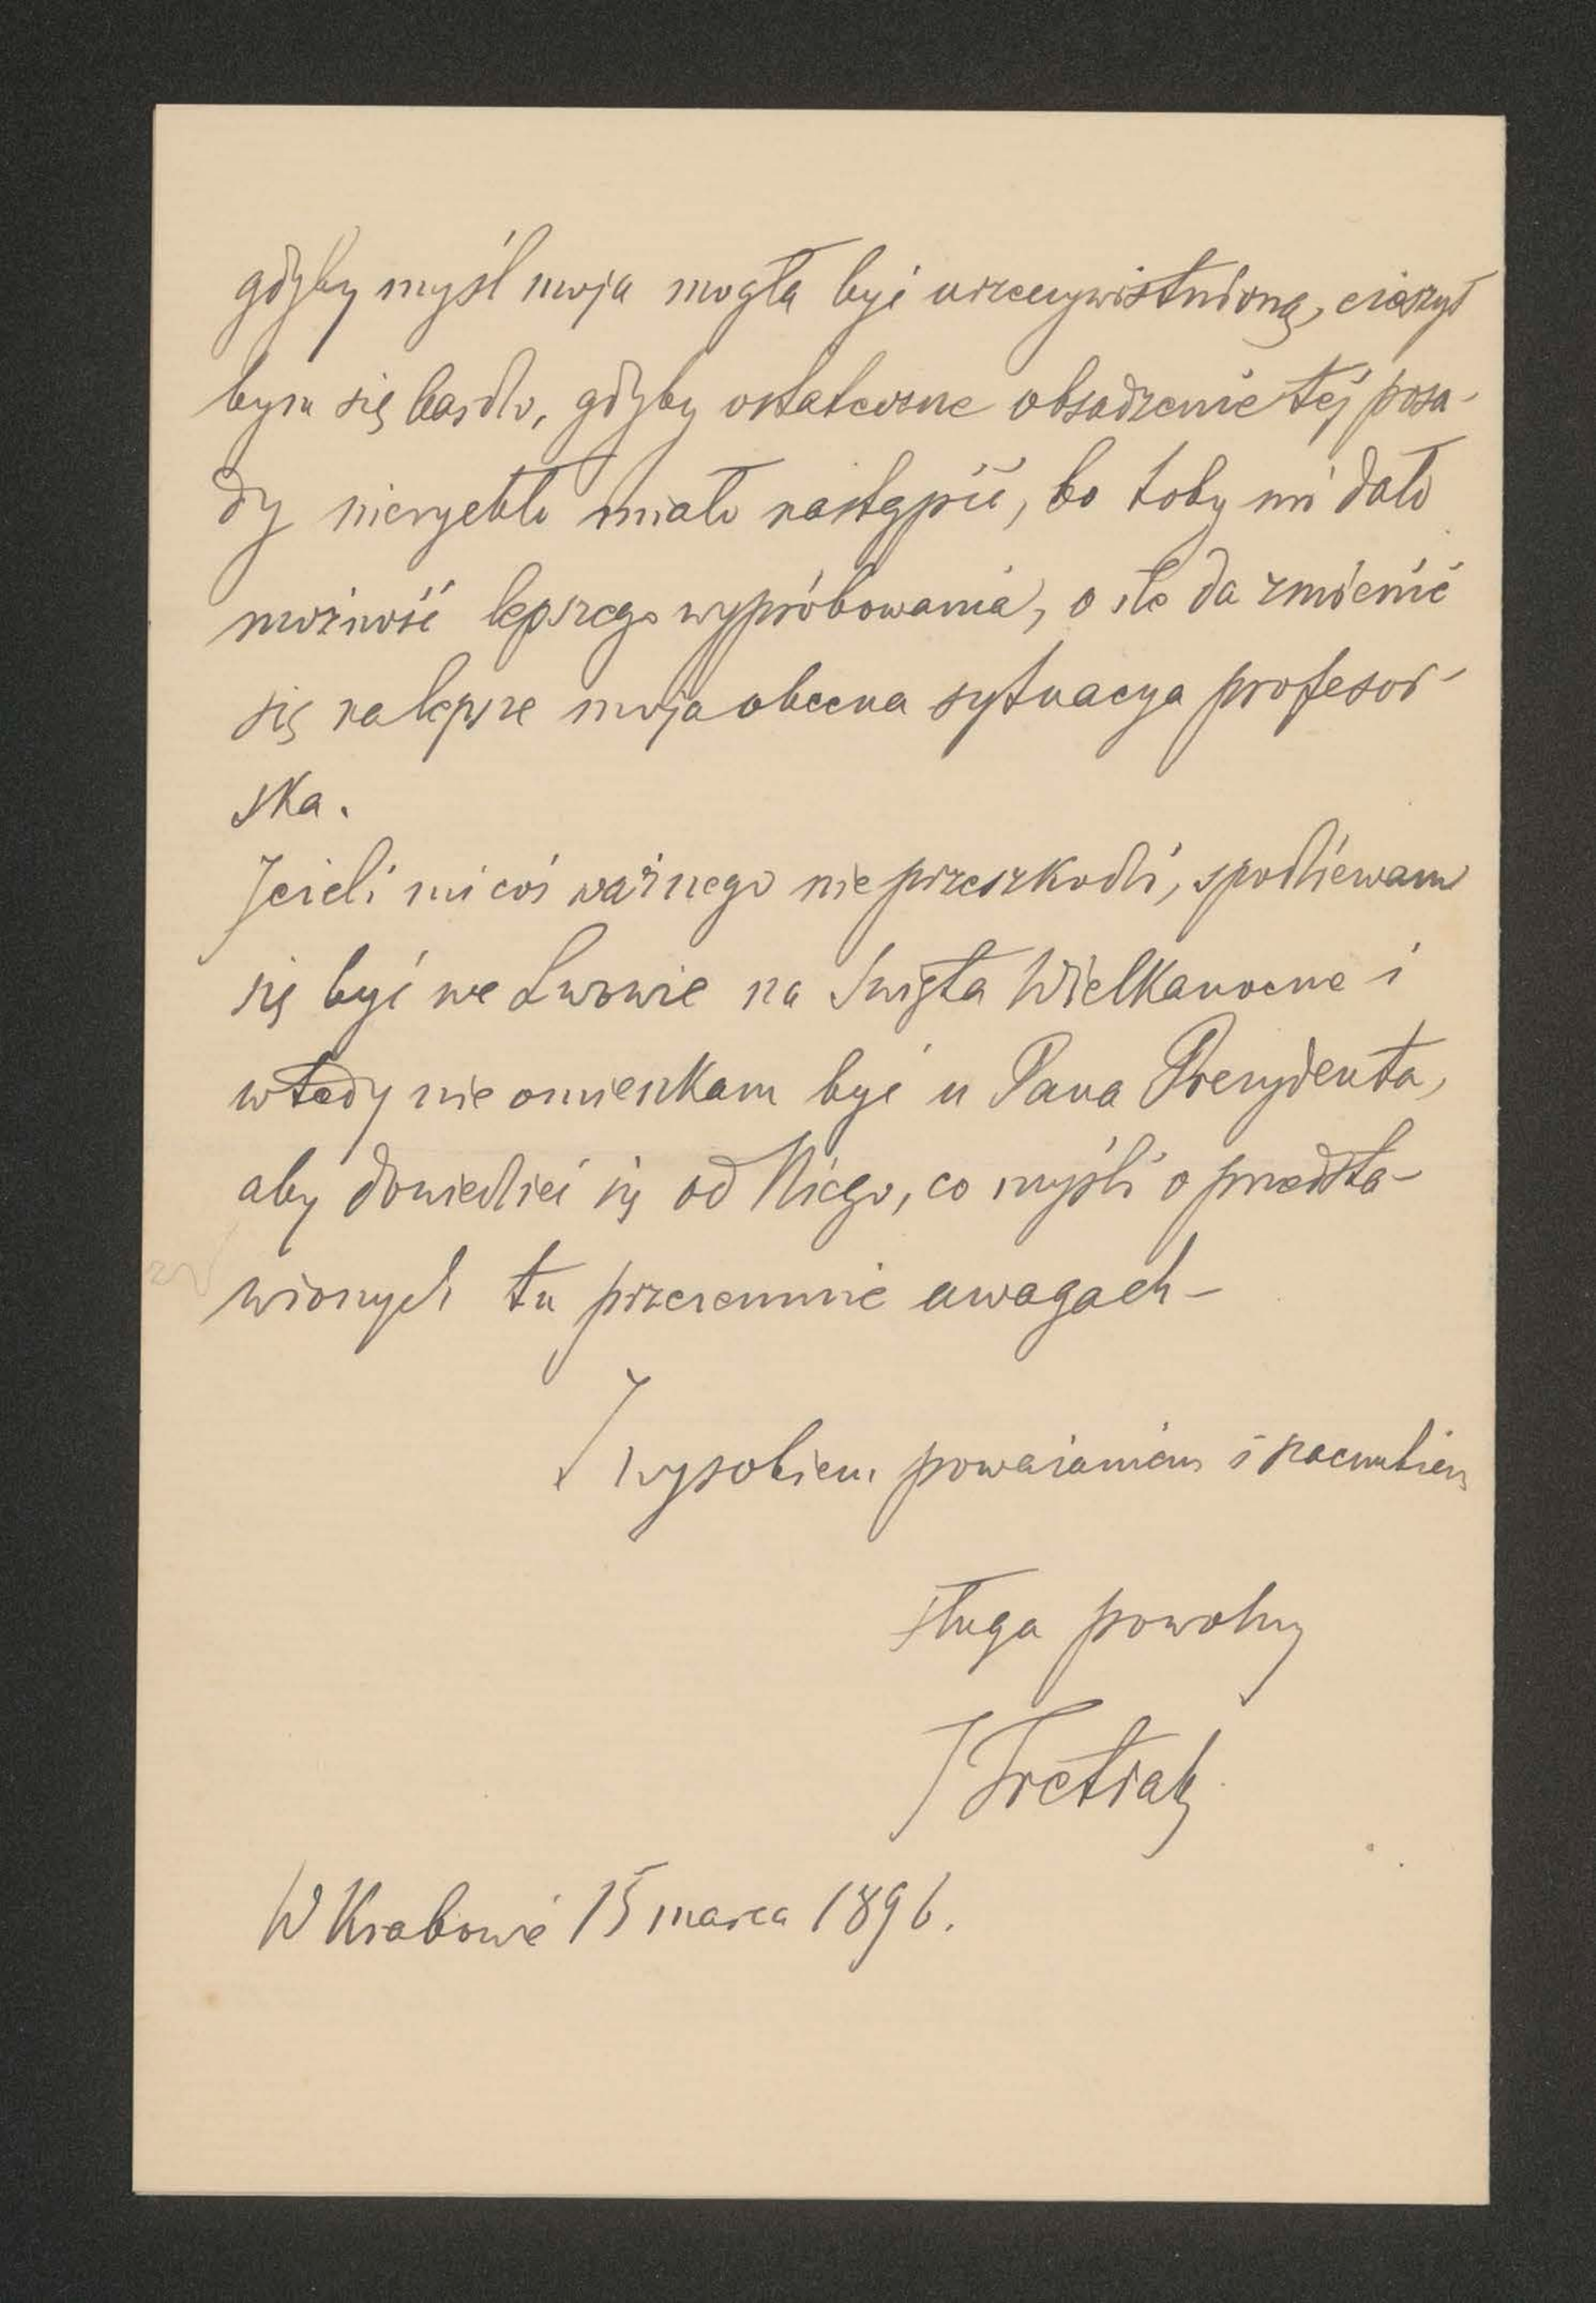 gdyby myśl moja mogła być urzeczywistnioną, cieszył
bym się bardzo, gdyby ostateczne obsadzenie tej posa-
dy nierychło miało nastąpić, bo toby mi dało
możność lepszego wypróbowania, o ile da zmienić
się na lepsze moja obecna sytuacya profesor-
ska.
Jeżeli mi coś ważnego nie przeszkodzi, spodziewam
się być we Lwowie na Święta Wielkanocne i
wtedy nie omieszkam być u Pana Prezydenta,
aby dowiedzieć się od Niego, co myśli o przedsta-
wionych tu przezemnie uwagach –
Z wysokiem poważaniem i szacunkiem
sługa powolny
J Tretiak
W Krakowie 15 marca 1896.